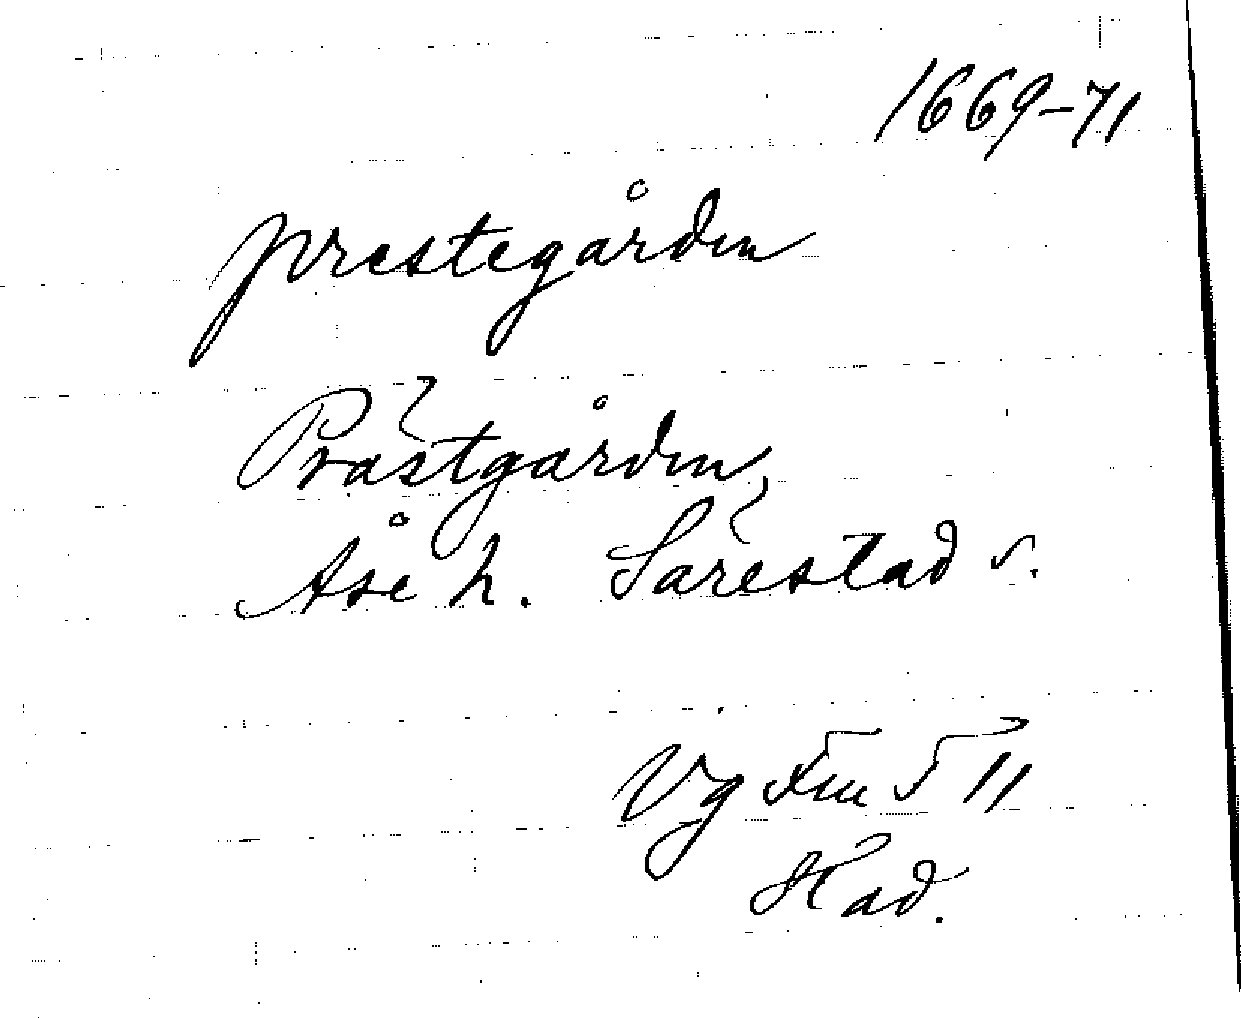 1669-71
prestegården
Prästgården
Åse h. Särestad s.
Vg Fm 5 11
Kad.